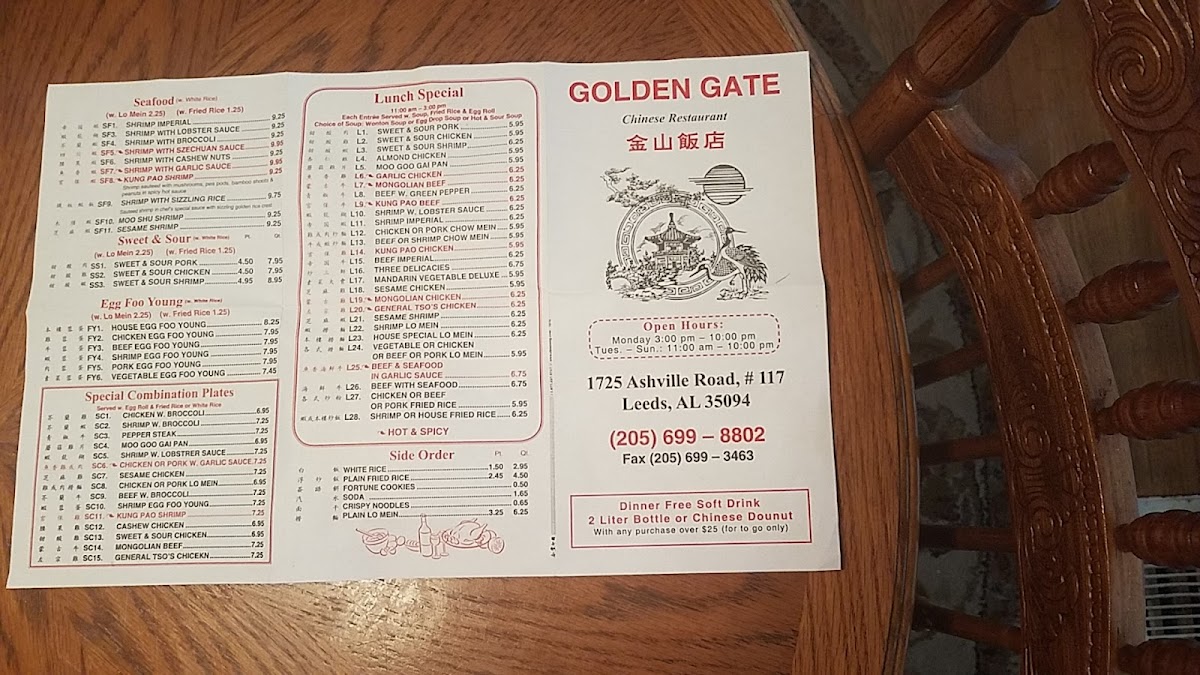 Seafood (w. White Rice)
(w. Lo Mein 2.25) (w. Fried Rice 1.25)
SF1. SHRIMP IMPERIAL 9.25
SF3. SHRIMP WITH LOBSTER SAUCE 9.25
SF4. SHRIMP WITH BROCCOLI 9.25
SF5. SHRIMP WITH SZECHUAN SAUCE 9.25
SF6. SHRIMP WITH CASHEW NUTS 9.25
SF7. SHRIMP WITH GARLIC SAUCE 9.25
SF8. KUNG PAO SHRIMP 9.95
Shrimp sauteed with mushrooms, pea pods, bamboo shoots &
peanuts in spicy hot sauce
SF9. SHRIMP WITH SIZZLING RICE 9.75
Sauteed shrimp in chef's special sauce with sizzling golden rice crust
SF10. MOO SHU SHRIMP 9.25
SF11. SESAME SHRIMP 9.25
Sweet & Sour (w. White Rice) Pt. Qt.
(w. Lo Mein 2.25) (w. Fried Rice 1.25)
SS1. SWEET & SOUR PORK 4.50 7.95
SS2. SWEET & SOUR CHICKEN 4.50 7.95
SS3. SWEET & SOUR SHRIMP 4.95 8.95
Egg Foo Young (w. White Rice)
(w. Lo Mein 2.25) (w. Fried Rice 1.25)
本樓蓉蛋 FY1. HOUSE EGG FOO YOUNG 8.25
雞蓉蛋 FY2. CHICKEN EGG FOO YOUNG 7.95
牛蓉蛋 FY3. BEEF EGG FOO YOUNG 7.95
蝦蓉蛋 FY4. SHRIMP EGG FOO YOUNG 7.95
肉蓉蛋 FY5. PORK EGG FOO YOUNG 7.95
FY6. VEGETABLE EGG FOO YOUNG 7.45
Special Combination Plates
Served w. Egg Roll & Fried Rice or White Rice
芥蘭雞 SC1. CHICKEN W. BROCCOLI 6.95
芥蘭蝦 SC2. SHRIMP W. BROCCOLI 7.25
青椒牛 SC3. PEPPER STEAK 7.25
蘑菇雞片 SC4. MOO GOO GAI PAN 6.95
SC5. SHRIMP W. LOBSTER SAUCE 7.25
SC6. CHICKEN OR PORK W. GARLIC SAUCE 7.25
芝麻雞 SC7. SESAME CHICKEN 7.25
SC8. CHICKEN OR PORK LO MEIN 6.95
芥蘭牛 SC9. BEEF W. BROCCOLI 7.25
蝦蓉蛋 SC10. SHRIMP EGG FOO YOUNG 7.25
宮保蝦 SC11. KUNG PAO SHRIMP 7.25
腰果雞 SC12. CASHEW CHICKEN 6.95
甜酸雞 SC13. SWEET & SOUR CHICKEN 6.95
蒙古牛 SC14. MONGOLIAN BEEF 7.25
左宗雞 SC15. GENERAL TSO'S CHICEKN 7.25
Lunch Special
11:00 am – 3:00 pm
Each Entrée Served w. Soup, Fried Rice & Egg Roll
Choice of Soup: Wonton Soup or Egg Drop Soup or Hot & Sour Soup
甜酸肉 L1. SWEET & SOUR PORK 5.95
甜酸雞 L2. SWEET & SOUR CHICKEN 5.95
甜酸蝦 L3. SWEET & SOUR SHRIMP 6.25
杏仁雞 L4. ALMOND CHICKEN 5.95
蘑菇雞片 L5. MOO GOO GAI PAN 5.95
魚香雞 L6. GARLIC CHICKEN 6.25
蒙古牛 L7. MONGOLIAN BEEF 6.25
青椒牛 L8. BEEF W. GREEN PEPPER 6.25
宮保牛 L9. KUNG PAO BEEF 6.25
蝦龍糊 L10. SHRIMP W. LOBSTER SAUCE 6.25
L11. SHRIMP IMPERIAL 6.25
L12. CHICKEN OR PORK CHOW MEIN 5.95
L13. BEEF OR SHRIMP CHOW MEIN 5.95
宮保雞 L14. KUNG PAO CHICKEN 5.95
L15. BEEF IMPERIAL 6.25
炒三鮮 L16. THREE DELICACIES 6.75
L17. MANDARIN VEGETABLE DELUXE 5.95
芝麻雞 L18. SESAME CHICKEN 5.95
蒙古雞 L19. MONGOLIAN CHICKEN 6.25
左宗雞 L20. GENERAL TSO'S CHICKEN 6.25
芝麻蝦 L21. SESAME SHRIMP 6.25
蝦撈麵 L22. SHRIMP LO MEIN 6.25
本樓撈麵 L23. HOUSE SPECIAL LO MEIN 6.25
各式撈麵 L24. VEGETABLE OR CHICKEN
OR BEEF OR PORK LO MEIN 5.95
魚香海鮮牛 L25. BEEF & SEAFOOD
IN GARLIC SAUCE 6.75
海鮮牛 L26. BEEF WITH SEAFOOD 6.75
各式炒飯 L27. CHICKEN OR BEEF
OR PORK FRIED RICE 5.95
蝦或本樓炒飯 L28. SHRIMP OR HOUSE FRIED RICE 6.25
HOT & SPICY
Side Order Pt. Qt.
白飯 WHITE RICE 1.50 2.95
淨炒飯 PLAIN FRIED RICE 2.45 4.50
FORTUNE COOKIES 0.50
汽水 SODA 1.65
CRISPY NOODLES 0.65
PLAIN LO MEIN 3.25 6.25
GOLDEN GATE
Chinese Restaurant
金山飯店
Open Hours:
Monday 3:00 pm – 10:00 pm
Tues. – Sun.: 11:00 am – 10:00 pm
1725 Ashville Road, # 117
Leeds, AL 35094
(205) 699 – 8802
Fax (205) 699 – 3463
Dinner Free Soft Drink
2 Liter Bottle or Chinese Dounut
With any purchase over $25 (for to go only)